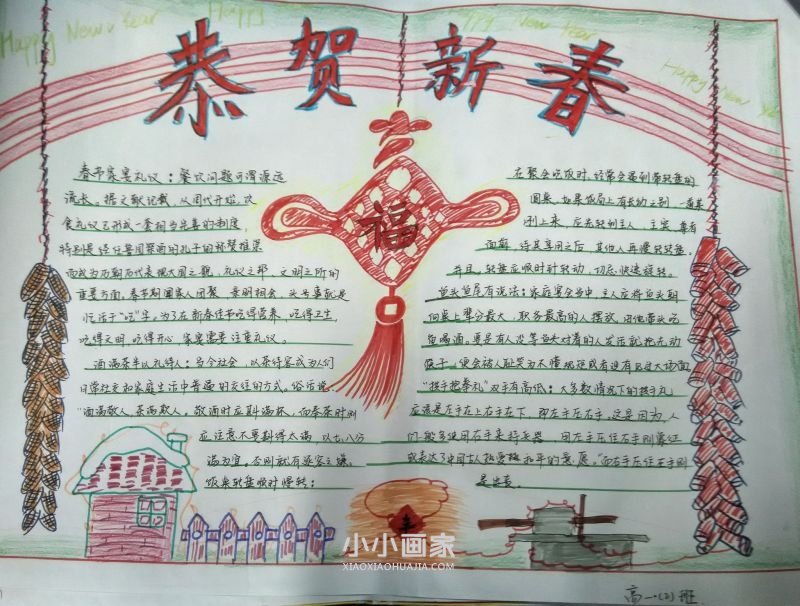 Happy New Year
Happy
New Year
Happy New
恭贺新春
福
春节宴宾礼仪：餐饮问题可谓源远
流长。据文献记载，从周代开始，饮
食礼仪已形成一套相当完善的制度，
特别是经任鲁国祭酒的孔子的称赞推崇
而成为历朝历代表现大国之貌、礼仪之邦、文明之所的
重要方面。春节期间家人团聚、亲朋相会，头等事就是
忙活于“吃”字。为了在新春佳节吃得营养、吃得卫生
吃得文明、吃得开心，家宴需要注重礼仪。
酒满茶半以礼待人：当今社会，以茶待客成为人们
日常社交和家庭生活中普遍的交往的方式。俗话说，
“酒满敬人，茶满欺人，敬酒时应斟满杯，而奉茶时则
应注意不要斟得太满，以七八分
满为宜。否则就有逐客之嫌。
饭桌转盘顺时得转：
在聚会吃饭时，经常会碰到带转盘的
圆桌，如果饭局上有长幼之别，一每菜
刚上来，应先转到主人、主宾、尊者
面前，待其享用之后，其他人再慢转转盘，
并且，转盘应顺时针转动，切忌快速旋转。
鱼头鱼尾有说法：家庭宴会当中，主人应将鱼头朝
向桌上辈分最大、职务最高的人摆放，由他带头吃
鱼喝酒，要是有人没等鱼头对着的人发话就抢先动
筷子，便会被人耻笑为不懂规矩或者没有见过大场面
“拱手抱拳礼”双手有高低：大多数情况下的拱手礼
应该是左手在上右手在下，即左手压右手，这是因为人
们一般多使用右手来持兵器，因左手压住右手则寓征
或表达了中国古人热爱和平的意愿。“而右手压住左手则
是出丧。
小小画家
XIAOXIAOHUAJIA.COM
高一·(2)班